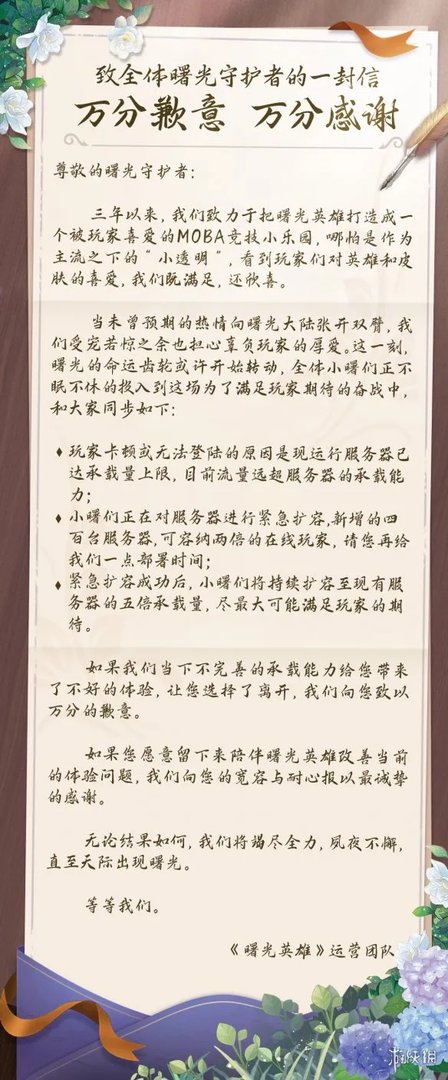 致全体曙光守护者的一封信
万分歉意 万分感谢
尊敬的曙光守护者：
三年以来，我们致力于把曙光英雄打造成一
个被玩家喜爱的MOBA竞技小乐园，哪怕是作为
主流之下的“小透明”，看到玩家们对英雄和皮
肤的喜爱，我们既满足，还欣喜。
当未曾预期的热情向曙光大陆张开双臂，我
们受宠若惊之余也担心辜负玩家的厚爱。这一刻，
曙光的命运齿轮或许开始转动，全体小曙们正不
眠不休的投入到这场为了满足玩家期待的奋战中，
和大家同步如下：
♦玩家卡顿或无法登陆的原因是现运行服务器已
达承载量上限，目前流量远超服务器的承载能
力；
♦小曙们正在对服务器进行紧急扩容，新增的四
百台服务器，可容纳两倍的在线玩家，请您再给
我们一点部署时间；
♦紧急扩容成功后，小曙们将持续扩容至现有服
务器的五倍承载量，尽最大可能满足玩家的期
待。
如果我们当下不完善的承载能力给您带来
了不好的体验，让您选择了离开，我们向您致以
万分的歉意。
如果您愿意留下来陪伴曙光英雄改善当前
的体验问题，我们向您的宽容与耐心报以最诚挚
的感谢。
无论结果如何，我们将竭尽全力，夙夜不懈，
直至天际出现曙光。
等等我们。
《曙光英雄》运营团队
游侠网